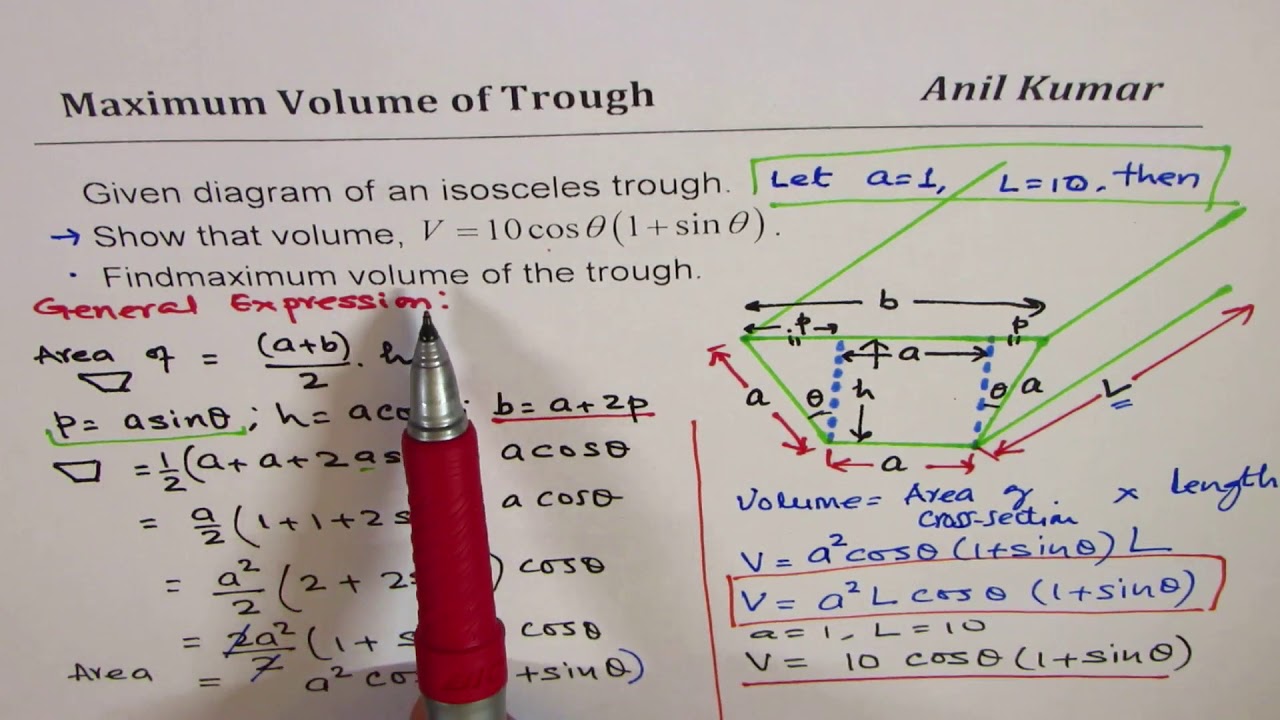 Maximum Volume of Trough
Anil Kumar
Given diagram of an isosceles trough.
Let a=1, L=10, then
→ Show that volume, V = 10cosθ(1+sinθ).
· Findmaximum volume of the trough.
General Expression:
Area of = (a+b)/2 . h
p= asinθ ; h= aco ; b= a+2p
= 1/2 (a+a+2as acosθ
= a/2 (1+1+2s acosθ
= a²/2 (2+2s ) cosθ
= 2a²/2 (1+s cosθ
Area = a² co +sinθ)
b
p
p
a
a
θ
h
θ
a
L
a
Volume= Area of cross-section × Length
V= a²cosθ(1+sinθ)L
V= a²Lcosθ (1+sinθ)
a=1, L=10
V= 10 cosθ(1+sinθ)